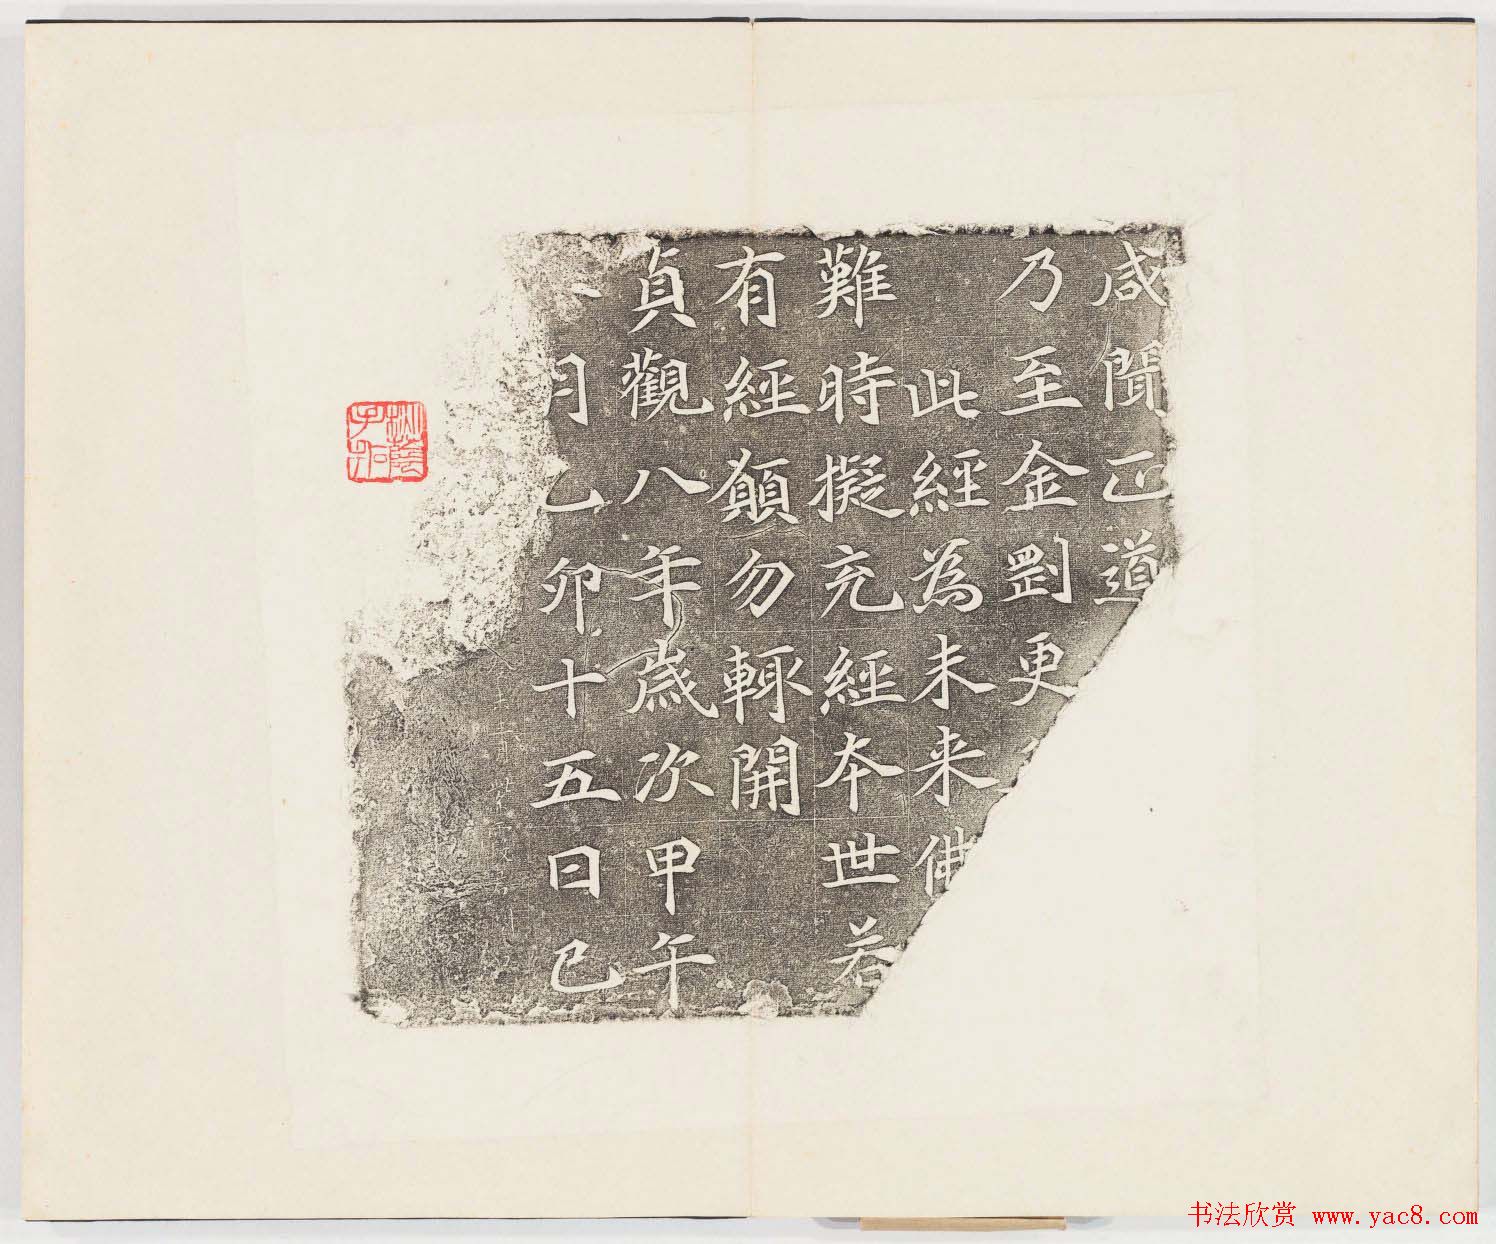 咸聞正道
乃至金剛更
此經為未来佛
難時擬充經本世若
有經願勿輙開
貞觀八年歲次甲午
月乙卯十五日己
书法欣赏 www.yac8.com